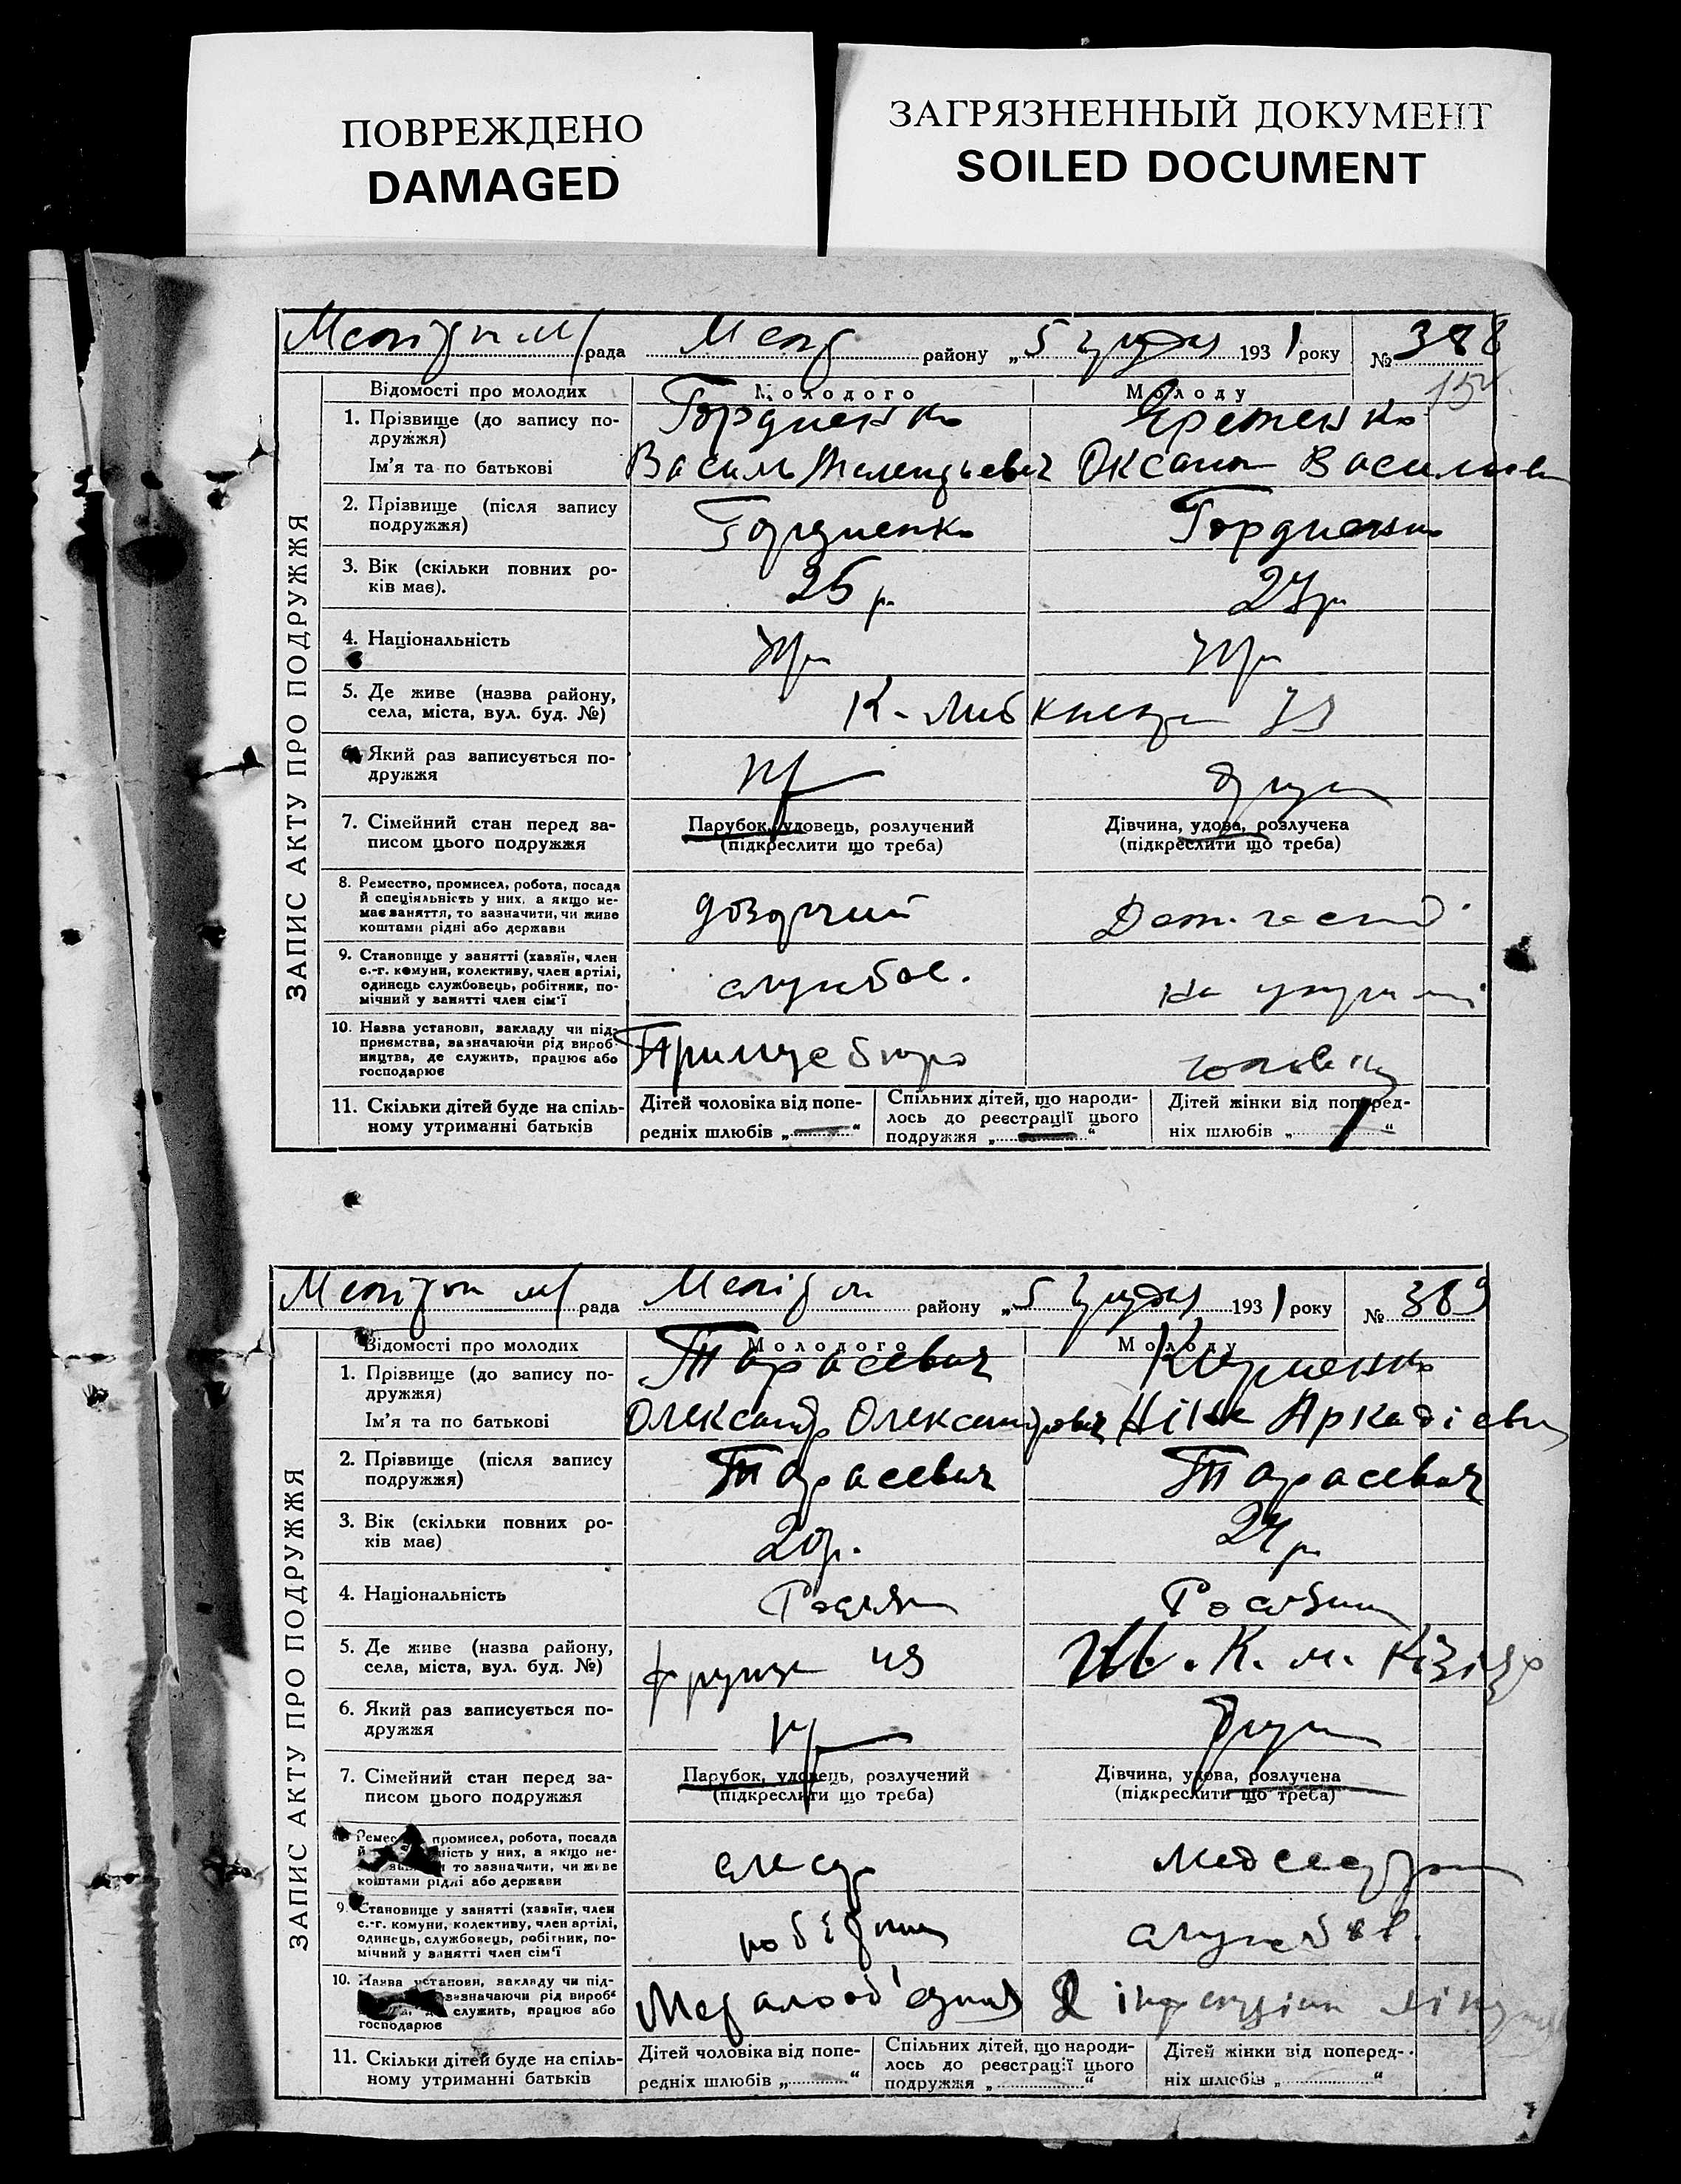 ПОВРЕЖДЕНО
DAMAGED
ЗАГРЯЗНЕННЫЙ ДОКУМЕНТ
SOILED DOCUMENT
рада району „5 грудня 1931 року № 388
ЗАПИС АКТУ ПРО ПОДРУЖЖЯ
Відомості про молодих
Молодого
Молоду
1. Прізвище (до запису по-
дружжя)
Гордиенко
Яременко
Ім'я та по батькові
Василь Оксана
2. Прізвище (після запису
подружжя)
Гордиенко
Гордиенко
3. Вік (скільки повних ро-
ків має).
25 р.
27 р
4. Національність
Укр
Укр
5. Де живе (назва району,
села, міста, вул. буд. №)
К. Либкнехта
6. Який раз записується по-
дружжя
други
7. Сімейний стан перед за-
писом цього подружжя
Парубок, удовець, розлучений
(підкреслити що треба)
Дівчина, удова, розлучена
(підкреслити що треба)
8. Ремество, промисел, робота, посада
й спеціяльність у них, а якщо не-
має заняття, то зазначити, чи живе
коштами рідні або держави
9. Становище у занятті (хазяїн, член
с.-г. комуни, колективу, член артілі,
одинець службовець, робітник, по-
мічний у занятті член сім'ї
службов.
10. Назва установи, закладу чи під-
приємства, зазначаючи рід вироб-
ництва, де служить, працює або
господарює
11. Скільки дітей буде на спіль-
ному утриманні батьків
Дітей чоловіка від попе-
редніх шлюбів „ — “
Спільних дітей, що народи-
лось до реєстрації цього
подружжя „ — “
Дітей жінки від поперед-
ніх шлюбів „ 1 “
рада району „5 грудня 1931 року № 389
ЗАПИС АКТУ ПРО ПОДРУЖЖЯ
Відомості про молодих
Молодого
Молоду
1. Прізвище (до запису по-
дружжя)
Тарасевич
Ім'я та по батькові
Олександр Олександрович Ніна Аркадієвн
2. Прізвище (після запису
подружжя)
Тарасевич
Тарасевич
3. Вік (скільки повних ро-
ків має)
20 р.
24 р
4. Національність
Росіян
Росіян
5. Де живе (назва району,
села, міста, вул. буд. №)
Фрунзе 49
6. Який раз записується по-
дружжя
други
7. Сімейний стан перед за-
писом цього подружжя
Парубок, удовець, розлучений
(підкреслити що треба)
Дівчина, удова, розлучена
(підкреслити що треба)
промисел, робота, посада
у них, а якщо не-
то зазначити, чи живе
коштами рідні або держави
слюсар
Медсестра
9. Становище у занятті (хазяїн, член
с.-г. комуни, колективу, член артілі,
одинець, службовець, робітник, по-
мічний у занятті член сім'ї
робітник
службов.
10. Назва установи, закладу чи під-
зазначаючи рід вироб-
служить, працює або
господарює
11. Скільки дітей буде на спіль-
ному утриманні батьків
Дітей чоловіка від попе-
редніх шлюбів „ “
Спільних дітей, що народи-
лось до реєстрації цього
подружжя „ “
Дітей жінки від поперед-
ніх шлюбів „ “